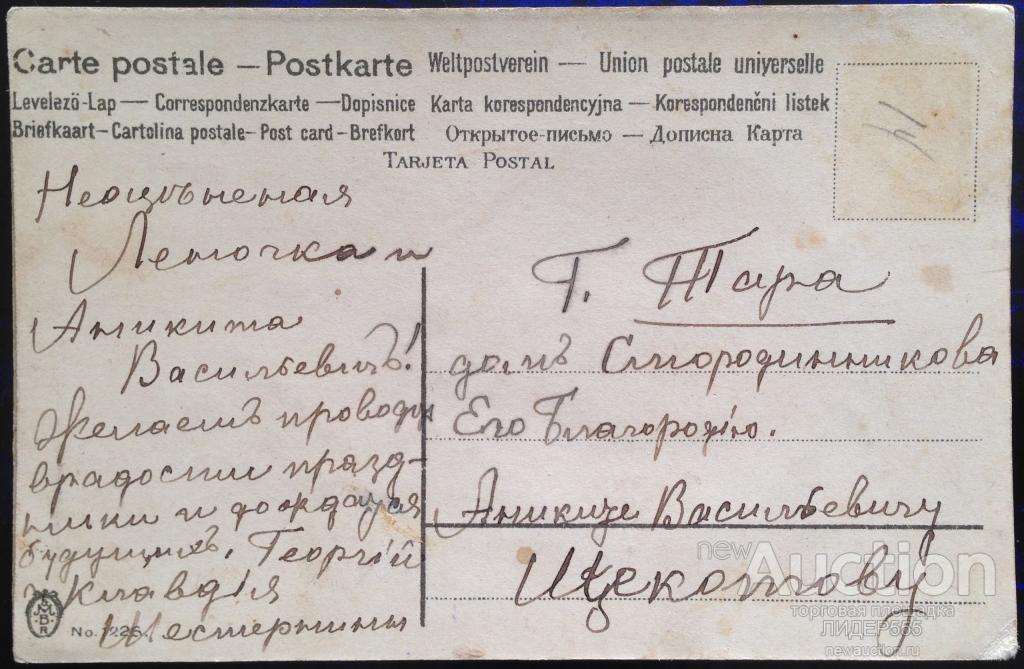 Carte postale – Postkarte Weltpostverein — Union postale universelle
Levelező-Lap — Correspondenzkarte — Dopisnice Karta korespondencyjna — Korespondenčni listek
Briefkaart – Cartolina postale – Post card – Brefkort Открытое-письмо — Дописна Карта
Tarjeta Postal
14
Неоцѣненая
Леночка и
Аникита
Васильевичъ!
Желаемъ проводит
в радости празд-
ники и дождатся
будущихъ. Георгій
и Клавдія
Шестернины
No. 1226
Г. Тара
домъ Смородинникова
Его Благородію.
Аниките Васильевичу
Щекотову
newAuction
торговая площадка
ЛИДЕР555
newauction.ru